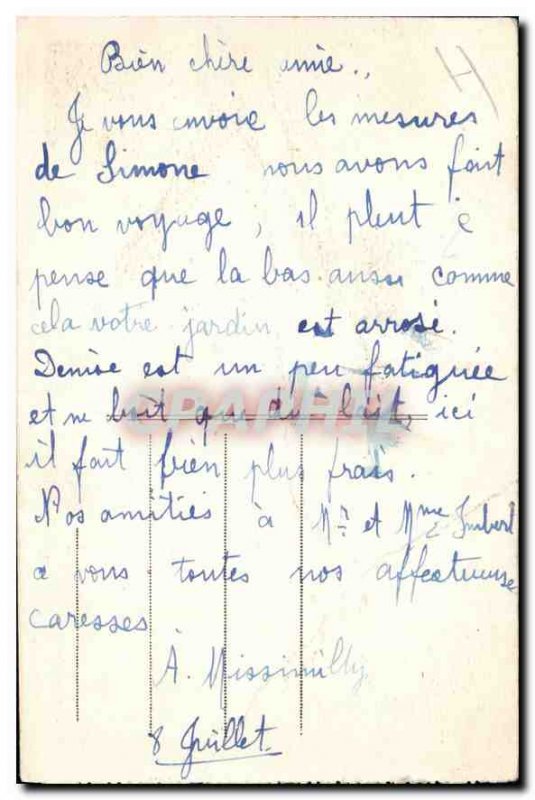 Bien chère amie.,
Je vous envoie les mesures
de Simone nous avons fait
bon voyage, il pleut je
pense que la bas aussi comme
cela votre jardin est arrosé.
Denise est un peu fatiguée
et ne boit que du lait, ici
il fait bien plus frais.
Nos amitiés à Mr et Mme Imbert
a vous toutes nos affectueuse
caresses
A. Missimilly
8 Juillet.
H